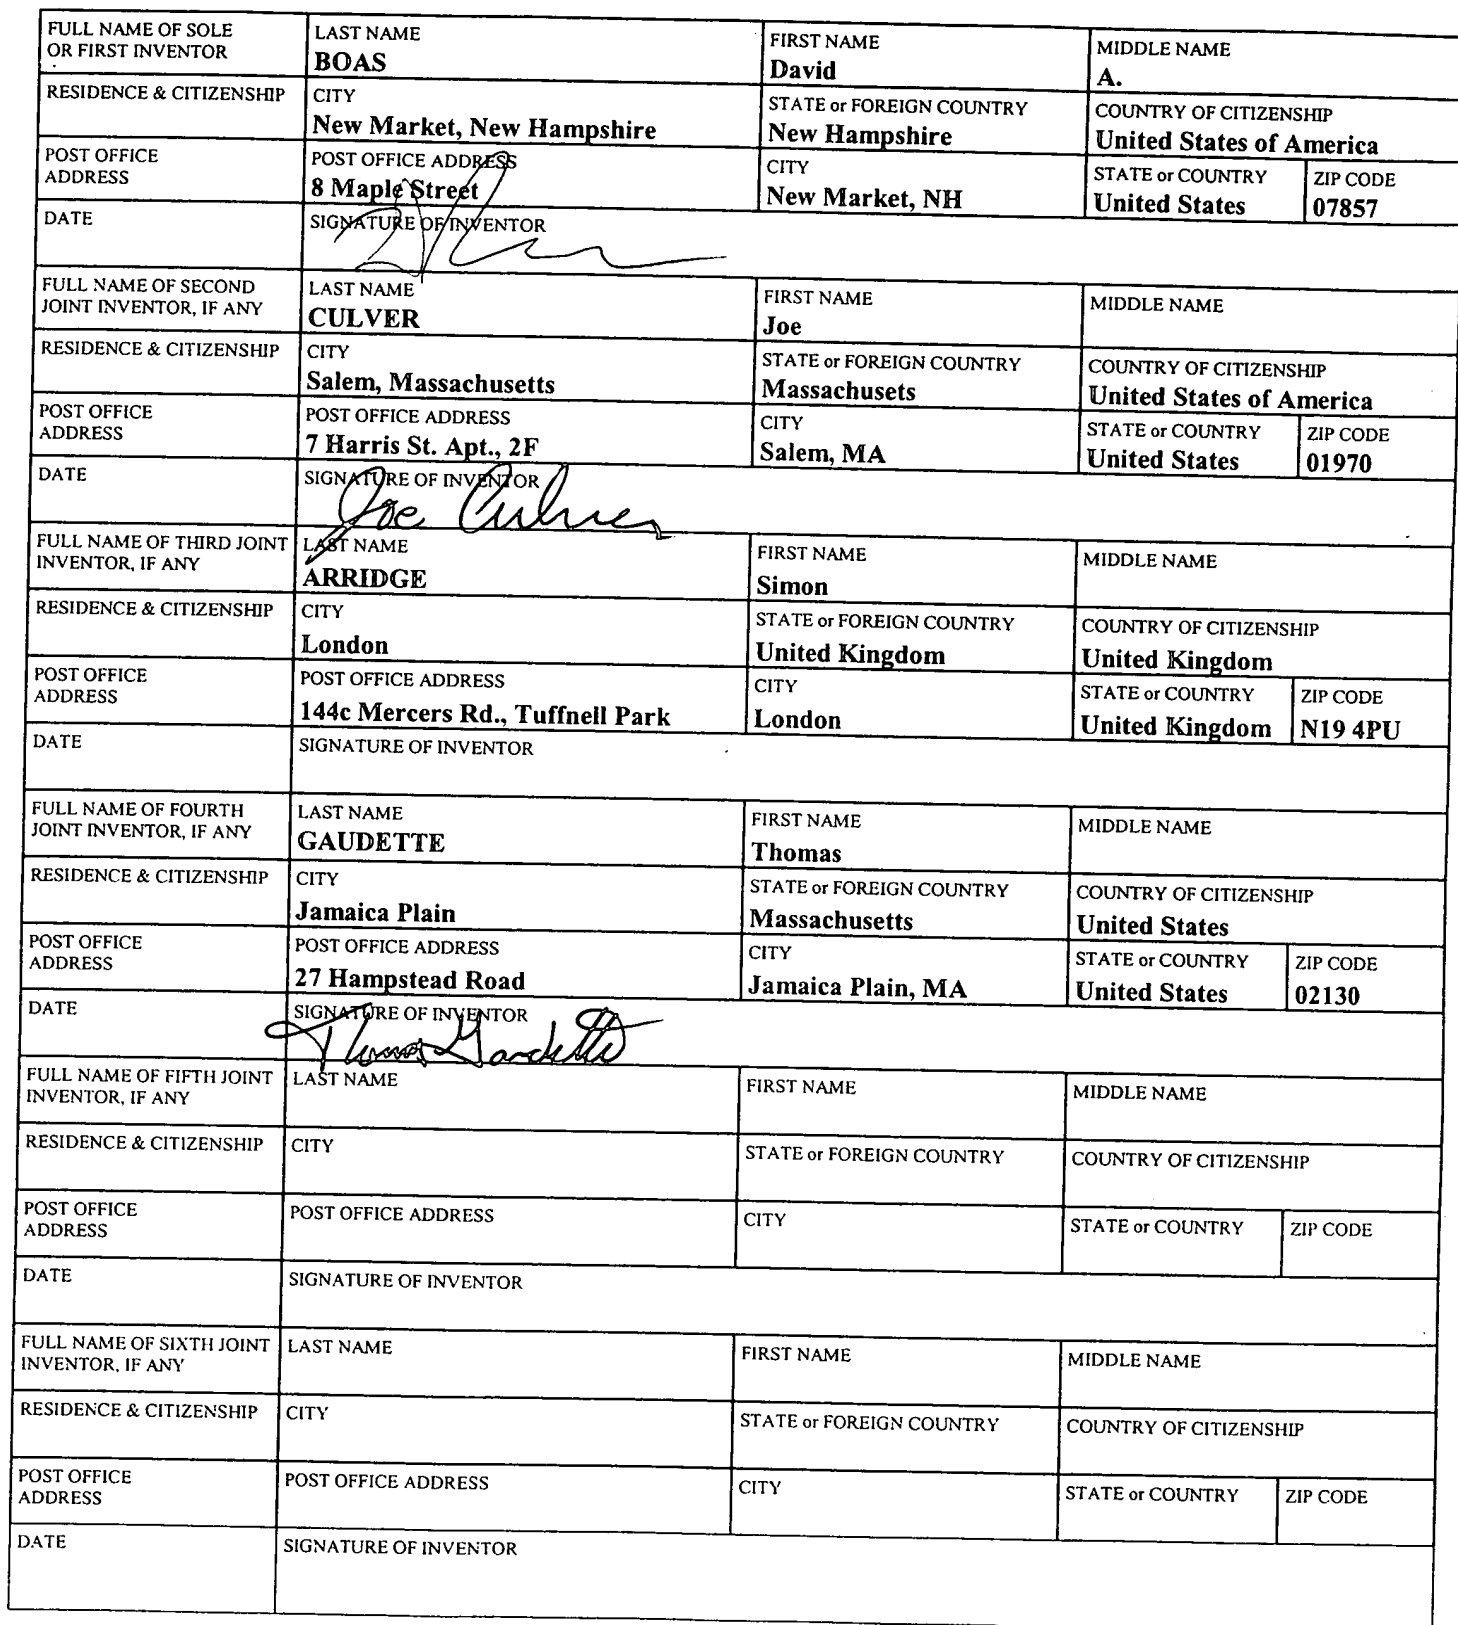 FULL NAME OF SOLE OR FIRST INVENTOR LAST NAME BOAS FIRST NAME David MIDDLE NAME A.
RESIDENCE & CITIZENSHIP CITY New Market, New Hampshire STATE or FOREIGN COUNTRY New Hampshire COUNTRY OF CITIZENSHIP United States of America
POST OFFICE ADDRESS POST OFFICE ADDRESS 8 Maple Street CITY New Market, NH STATE or COUNTRY United States ZIP CODE 07857
DATE SIGNATURE OF INVENTOR
FULL NAME OF SECOND JOINT INVENTOR, IF ANY LAST NAME CULVER FIRST NAME Joe MIDDLE NAME
RESIDENCE & CITIZENSHIP CITY Salem, Massachusetts STATE or FOREIGN COUNTRY Massachusets COUNTRY OF CITIZENSHIP United States of America
POST OFFICE ADDRESS POST OFFICE ADDRESS 7 Harris St. Apt., 2F CITY Salem, MA STATE or COUNTRY United States ZIP CODE 01970
DATE SIGNATURE OF INVENTOR Joe Culver
FULL NAME OF THIRD JOINT INVENTOR, IF ANY LAST NAME ARRIDGE FIRST NAME Simon MIDDLE NAME
RESIDENCE & CITIZENSHIP CITY London STATE or FOREIGN COUNTRY United Kingdom COUNTRY OF CITIZENSHIP United Kingdom
POST OFFICE ADDRESS POST OFFICE ADDRESS 144c Mercers Rd., Tuffnell Park CITY London STATE or COUNTRY United Kingdom ZIP CODE N19 4PU
DATE SIGNATURE OF INVENTOR
FULL NAME OF FOURTH JOINT INVENTOR, IF ANY LAST NAME GAUDETTE FIRST NAME Thomas MIDDLE NAME
RESIDENCE & CITIZENSHIP CITY Jamaica Plain STATE or FOREIGN COUNTRY Massachusetts COUNTRY OF CITIZENSHIP United States
POST OFFICE ADDRESS POST OFFICE ADDRESS 27 Hampstead Road CITY Jamaica Plain, MA STATE or COUNTRY United States ZIP CODE 02130
DATE SIGNATURE OF INVENTOR Thomas Gaudette
FULL NAME OF FIFTH JOINT INVENTOR, IF ANY LAST NAME FIRST NAME MIDDLE NAME
RESIDENCE & CITIZENSHIP CITY STATE or FOREIGN COUNTRY COUNTRY OF CITIZENSHIP
POST OFFICE ADDRESS POST OFFICE ADDRESS CITY STATE or COUNTRY ZIP CODE
DATE SIGNATURE OF INVENTOR
FULL NAME OF SIXTH JOINT INVENTOR, IF ANY LAST NAME FIRST NAME MIDDLE NAME
RESIDENCE & CITIZENSHIP CITY STATE or FOREIGN COUNTRY COUNTRY OF CITIZENSHIP
POST OFFICE ADDRESS POST OFFICE ADDRESS CITY STATE or COUNTRY ZIP CODE
DATE SIGNATURE OF INVENTOR